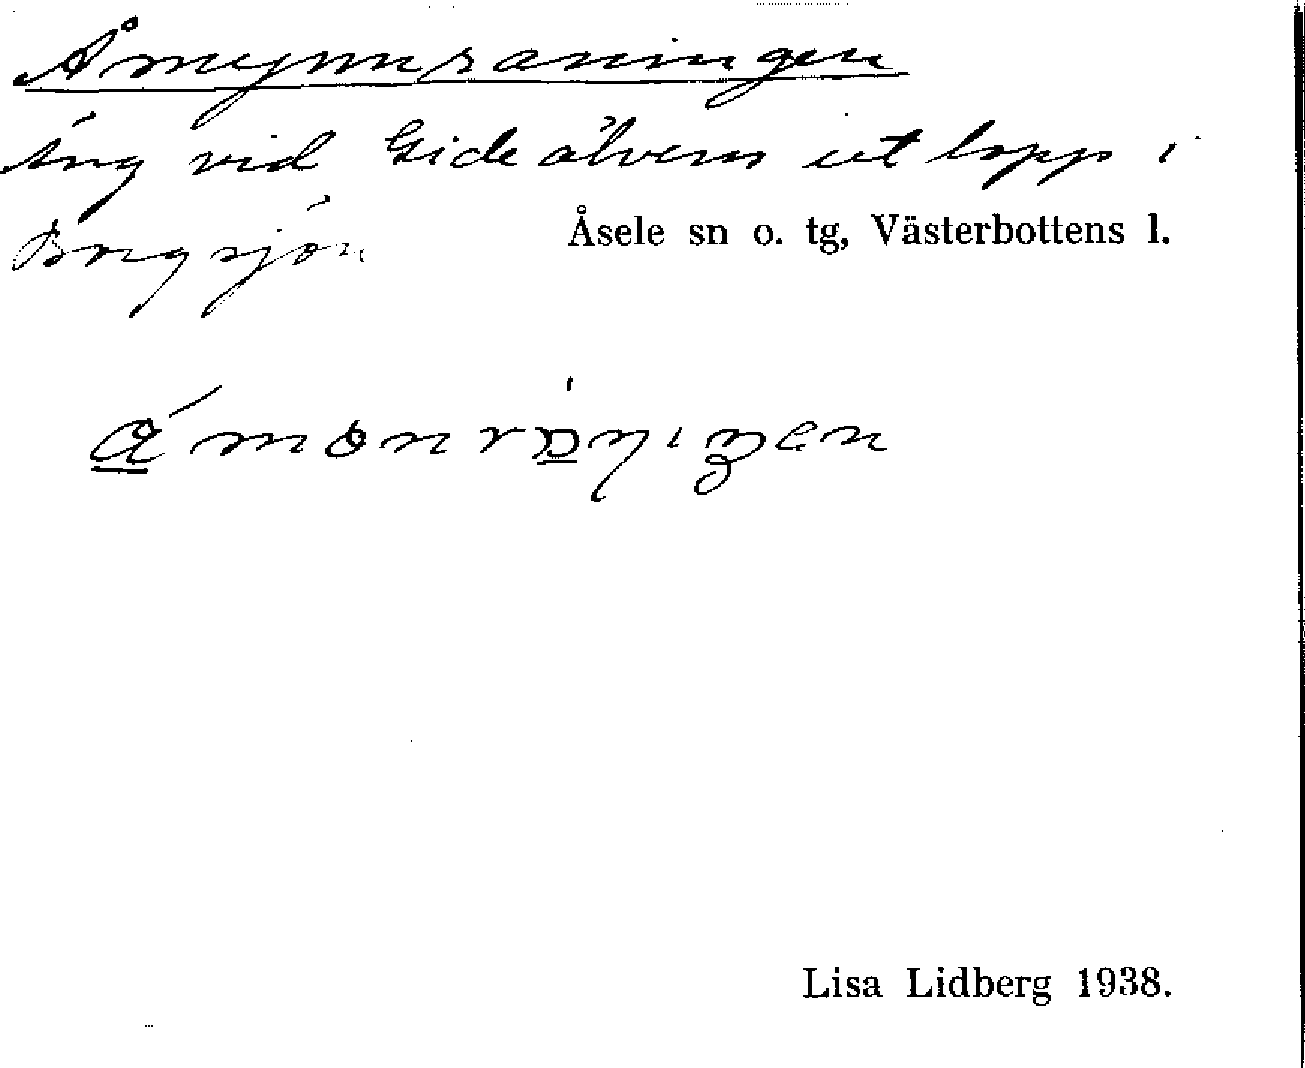 Åmynnraningen
Äng vid Gideälvens utlopp i
Borgsjön
Åsele sn o. tg, Västerbottens l.
Lisa Lidberg 1938.